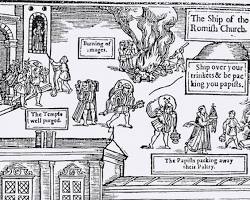 The Ship of the
Romish Church
Burning of
images.
Ship over your
trinkets & be pac
king you papists.
The Temple
well purged.
The Papists packing away
their Paltry.